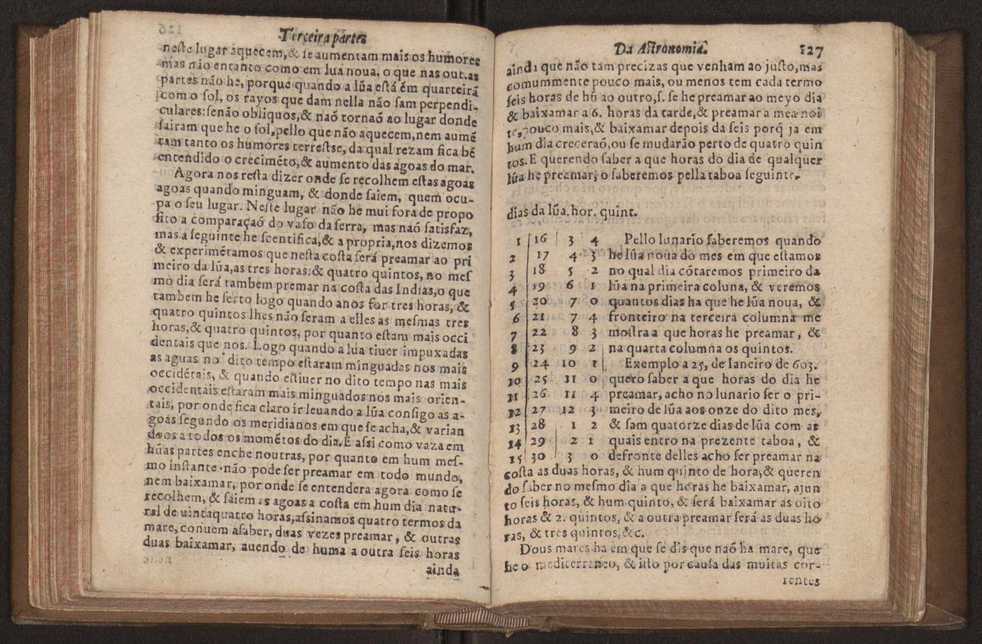 Terceira parte
neste lugar aquecem,& se aumentam mais os humores
mas não entanto como em lua noua, o que nas outras
partes não he, porque quando a lũa está em quarteirã
com o sol, os rayos que dam nella não sam perpendi-
culares: senão obliquos, & naõ tornaõ ao lugar donde
sairam que he o sol, pello que não aquecem, nem aumẽ
tam tanto os humores terrestse, da qual rezam fica bẽ
entendido o crecimẽto, & aumento das agoas do mar.
Agora nos resta dizer onde se recolhem estas agoas
agoas quando minguam, & donde saiem, quem ocu-
pa o seu lugar. Neste lugar não he mui fora de propo
sito a comparaçaõ do vaso da serra, mas naõ satisfaz,
mas a seguinte he scentifica, & a propria, nos dizemos
& experimẽtamos que nesta costa será preamar ao pri
meiro da lũa, as tres horas: & quatro quintos, no mes
mo dia será tambem premar na costa das Indias, o que
tambem he serto logo quando a nos for tres horas, &
quatro quintos lhes não seram a elles as mesmas tres
horas, & quatro quintos, por quanto estam mais occi
dentais que nos. Logo quando a lũa tiuer impuxadas
as aguas no dito tempo estaram minguadas nos mais
occidẽtais, & quando estiuer no dito tempo nas mais
occidentais estaram mais minguados nos mais orien-
tais, por onde fica claro ir leuando a lũa consigo as a-
goas segundo os meridianos em que se acha, & varian
dnos a todos os momẽtos do dia. E assi como vaza em
hũas partes enche noutras, por quanto em hum mes-
mo instante não pode ser preamar em todo mundo,
nem baixamar, por onde se entendera agora como se
recolhem, & saiem as agoas a costa em hum dia natu-
ral de uintaquatro horas, assinamos quatro termos da
mare, conuem asaber, duas vezes preamar, & outras
duas baixamar, auendo de huma a outra seis horas
ainda
Da Astronomia. 127
ainda que não tam precizas que venham ao justo, mas
comummente pouco mais, ou menos tem cada termo
seis horas de hũ ao outro, s. se he preamar ao meyo dia
& baixamar a 6. horas da tarde, & preamar a mea noi
te, pouco mais, & baixamar depois da seis porq̃ ja em
hum dia creceraõ, ou se mudarão perto de quatro quin
tos. E querendo saber a que horas do dia de qualquer
lũa he preamar, o saberemos pella taboa seguinte.
dias da lũa. hor. quint.
1 16 3 4 Pello lunario saberemos quando
2 17 4 3 he lũa noua do mes em que estamos
3 18 5 2 no qual dia cõtaremos primeiro da
4 19 6 1 lũa na primeira coluna, & veremos
5 20 7 0 quantos dias ha que he lũa noua, &
6 21 7 4 fronteiro na terceira columna me
7 22 8 3 mostra a que horas he preamar, &
8 23 9 2 na quarta columna os quintos.
9 24 10 1 Exemplo a 25, de Ianeiro de 603.
10 25 11 0 quero saber a que horas do dia he
11 26 11 4 preamar, acho no lunario ser o pri-
12 27 12 3 meiro de lũa aos onze do dito mes,
13 28 1 2 & sam quatorze dias de lũa com as
14 29 2 1 quais entro na prezente taboa, &
15 30 3 0 defronte delles acho ser preamar na
costa as duas horas, & hum quinto de hora, & queren
do saber no mesmo dia a que horas he baixamar, ajun
to seis horas, & hum quinto, & será baixamar as oito
horas & 2. quintos, & a outra preamar será as duas ho
ras, & tres quintos, &c.
Dous mares ha em que se dis que naõ ha mare, que
he o mediterraneo, & isto por causa das muitas cor-
rentes